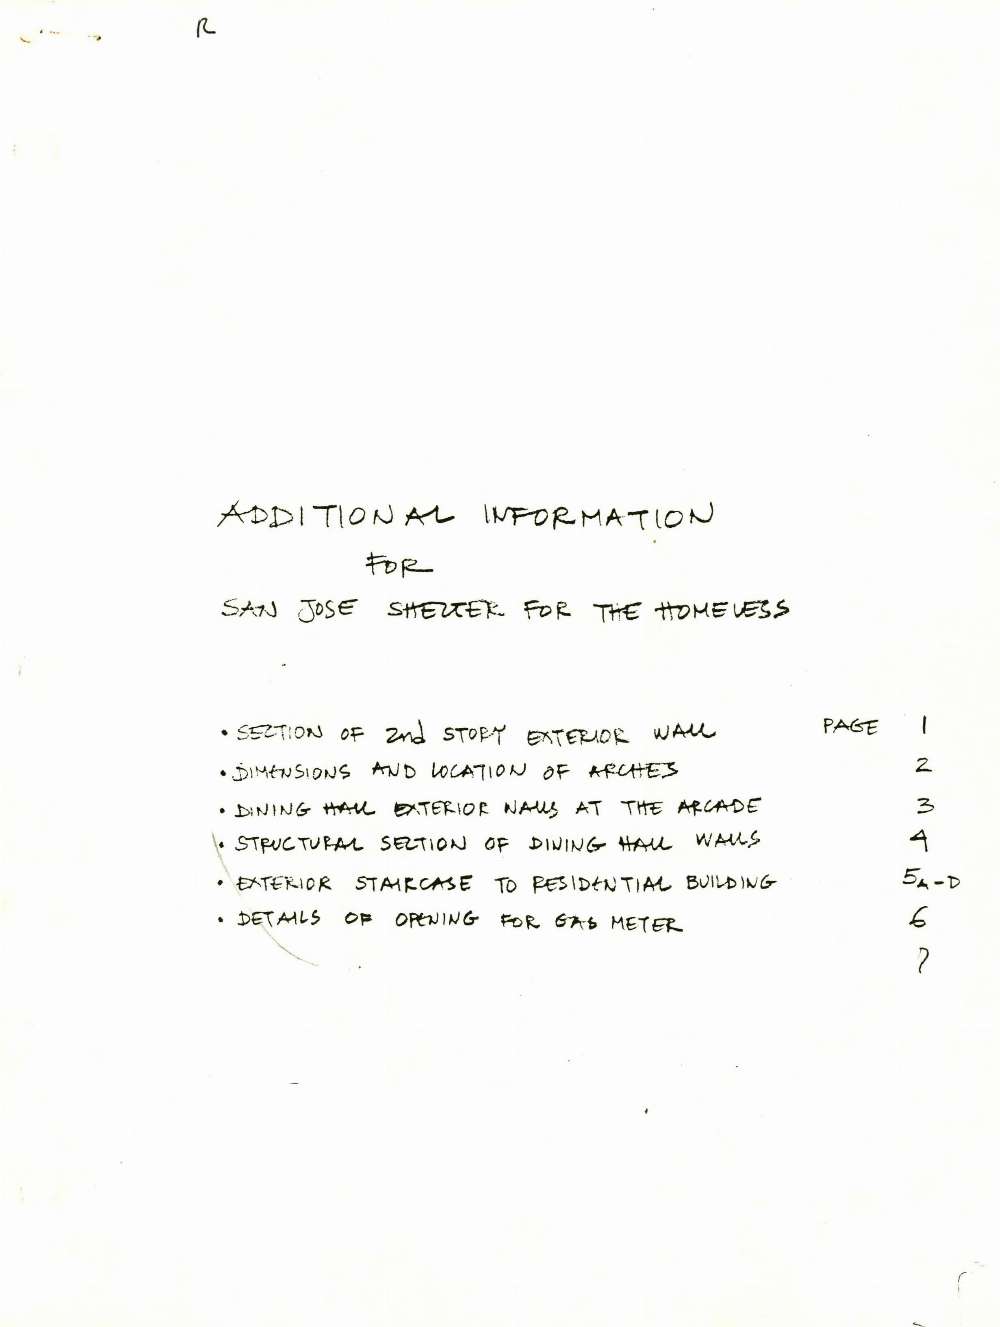 R
ADDITIONAL INFORMATION
FOR
SAN JOSE SHELTER FOR THE HOMELESS
• SECTION OF 2nd STORY EXTERIOR WALL PAGE 1
• DIMENSIONS AND LOCATION OF ARCHES 2
• DINING HALL EXTERIOR WALLS AT THE ARCADE 3
• STRUCTURAL SECTION OF DINING HALL WALLS 4
• EXTERIOR STAIRCASE TO RESIDENTIAL BUILDING 5A-D
• DETAILS OF OPENING FOR GAS METER 6
7